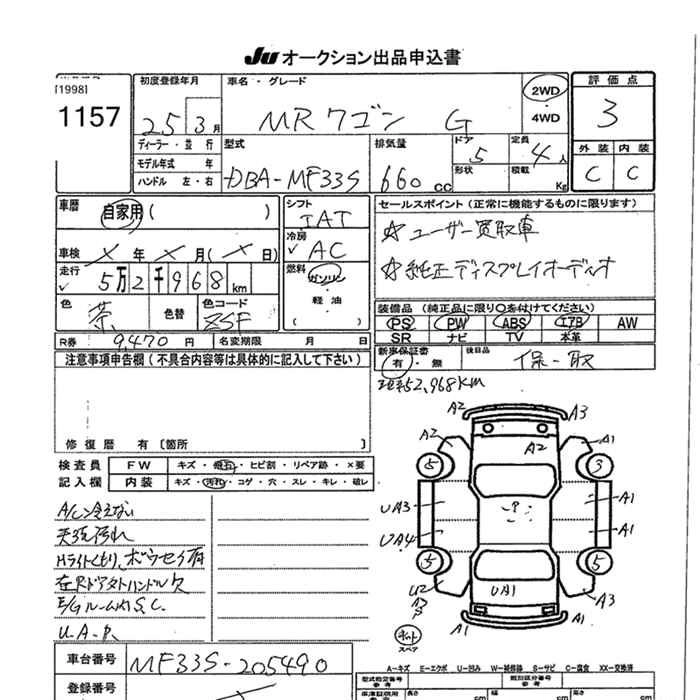 JU オークション出品申込書
[1998]
1157
初度登録年月
25 3 月
車名・グレード
MRワゴン G
2WD
・
4WD
評価点
3
ディーラー・並行
モデル年式 年
ハンドル 左・右
型式
DBA-MF33S
排気量
660 cc
ドア 5
形状
定員 4 人
積載 Kg
外装 内装
C C
車歴 自家用( )
車検 × 年 × 月( × 日)
走行 5万2千968 km
色 茶 色替 色コード ZSF
シフト
IAT
冷房
AC
燃料
ガソリン
・
軽油
( )
セールスポイント(正常に機能するものに限ります)
☆ユーザー買取車
☆純正ディスプレイオーディオ
装備品(純正品に限り○を付けてください)
PS PW ABS エアB AW
SR ナビ TV 本革
R券 9,470 円 名変期限 月 日
新車保証書 有・無
後日品 保-取
注意事項申告欄(不具合内容等は具体的に記入して下さい)
修復歴 有〔箇所
52,968KM
検査員 FW キズ・飛石・ヒビ割・リペア跡・×要
記入欄 内装 キズ・汚れ・コゲ・穴・スレ・キレ・破レ
A/C冷えない
天張汚れ
Hライトくもり、ボウセイ有
右Rドアアウトハンドル欠
E/Gルーム内S.C.
U.A.P.
A2 A3
A2 A2 A1
5 3
UA3 P A1
UA4 A1
5 5
U2 UA1 A3
A3
P
A1 A1
スペア
車台番号 MF33S-205490
登録番号
A-キズ E-エクボ U-凹み W-補修跡 S-サビ C-腐食 XX-交換済
型式指定番号 類別区分番号
参考 参考
長さ cm 幅 cm 高さ cm